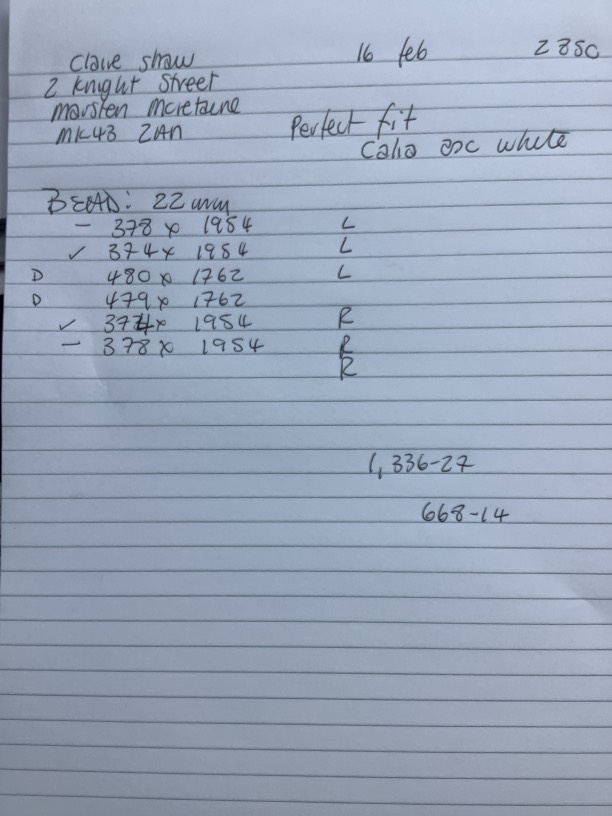 Claire Shaw 16 feb 2850
2 Knight Street
Marsten Mcretaine
MK43 2AN
Perfect fit
Calia asc white
BEAD: 22mm
- 378 x 1954 L
✓ 374 x 1954 L
D 480 x 1762 L
D 479 x 1762
✓ 374 x 1954 R
- 378 x 1954 R
R
1,336-27
668-14